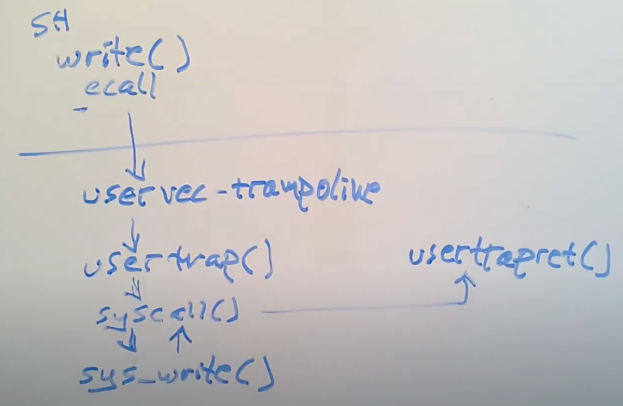 SH
write()
ecall
uservec-trampoline
usertrap()
usertrapret()
syscall()
sys_write()